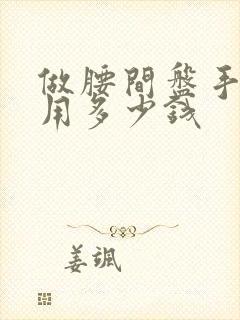 做腰間盤手
用多少錢
姜颯